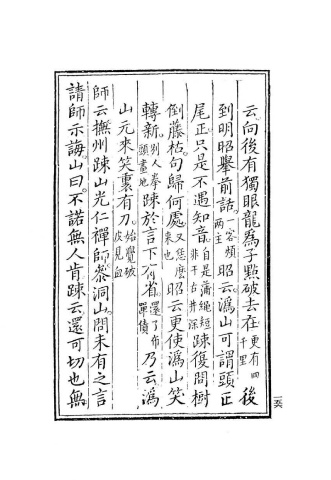 云。向後有獨眼龍爲子點破去在更有四千里後
到明昭舉前話。一客煩兩主昭云。潙山可謂頭正
尾正。只是不遇知音。自是蒲繩短非干古井深踈復問樹
倒藤枯。句歸何處。又恁麽來也昭云更使潙山笑
轉新。別人拳頭畫地踈於言下有省。還了布單債乃云潙
山元來笑裏有刀。始覺破皮見血
師云撫州踈山光仁禪師叅洞山。問未有之言
請師示誨。山曰。不諾無人肯踈云還可切也無